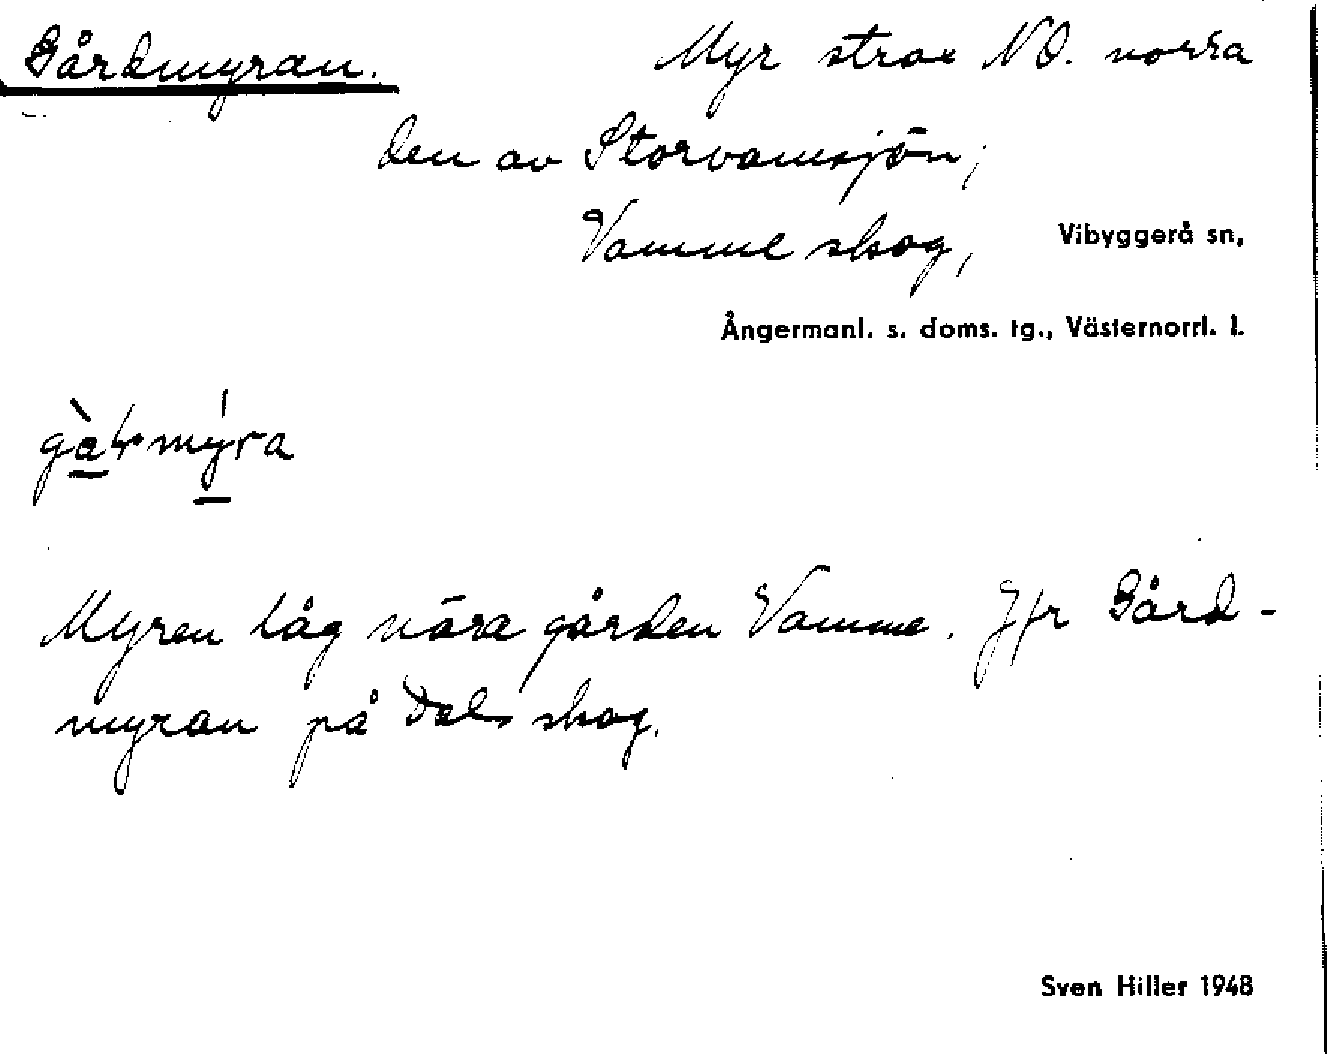 Gårdmyran. Myr strax NO. norra
den av Storvamsjön,
Vamme skog, Vibyggerå sn,
Ångermanl. s. doms. tg., Västernorrl. l.
Myren låg nära gården Vamme. Jfr Gård-
myran på Dals skog.
Sven Hiller 1948